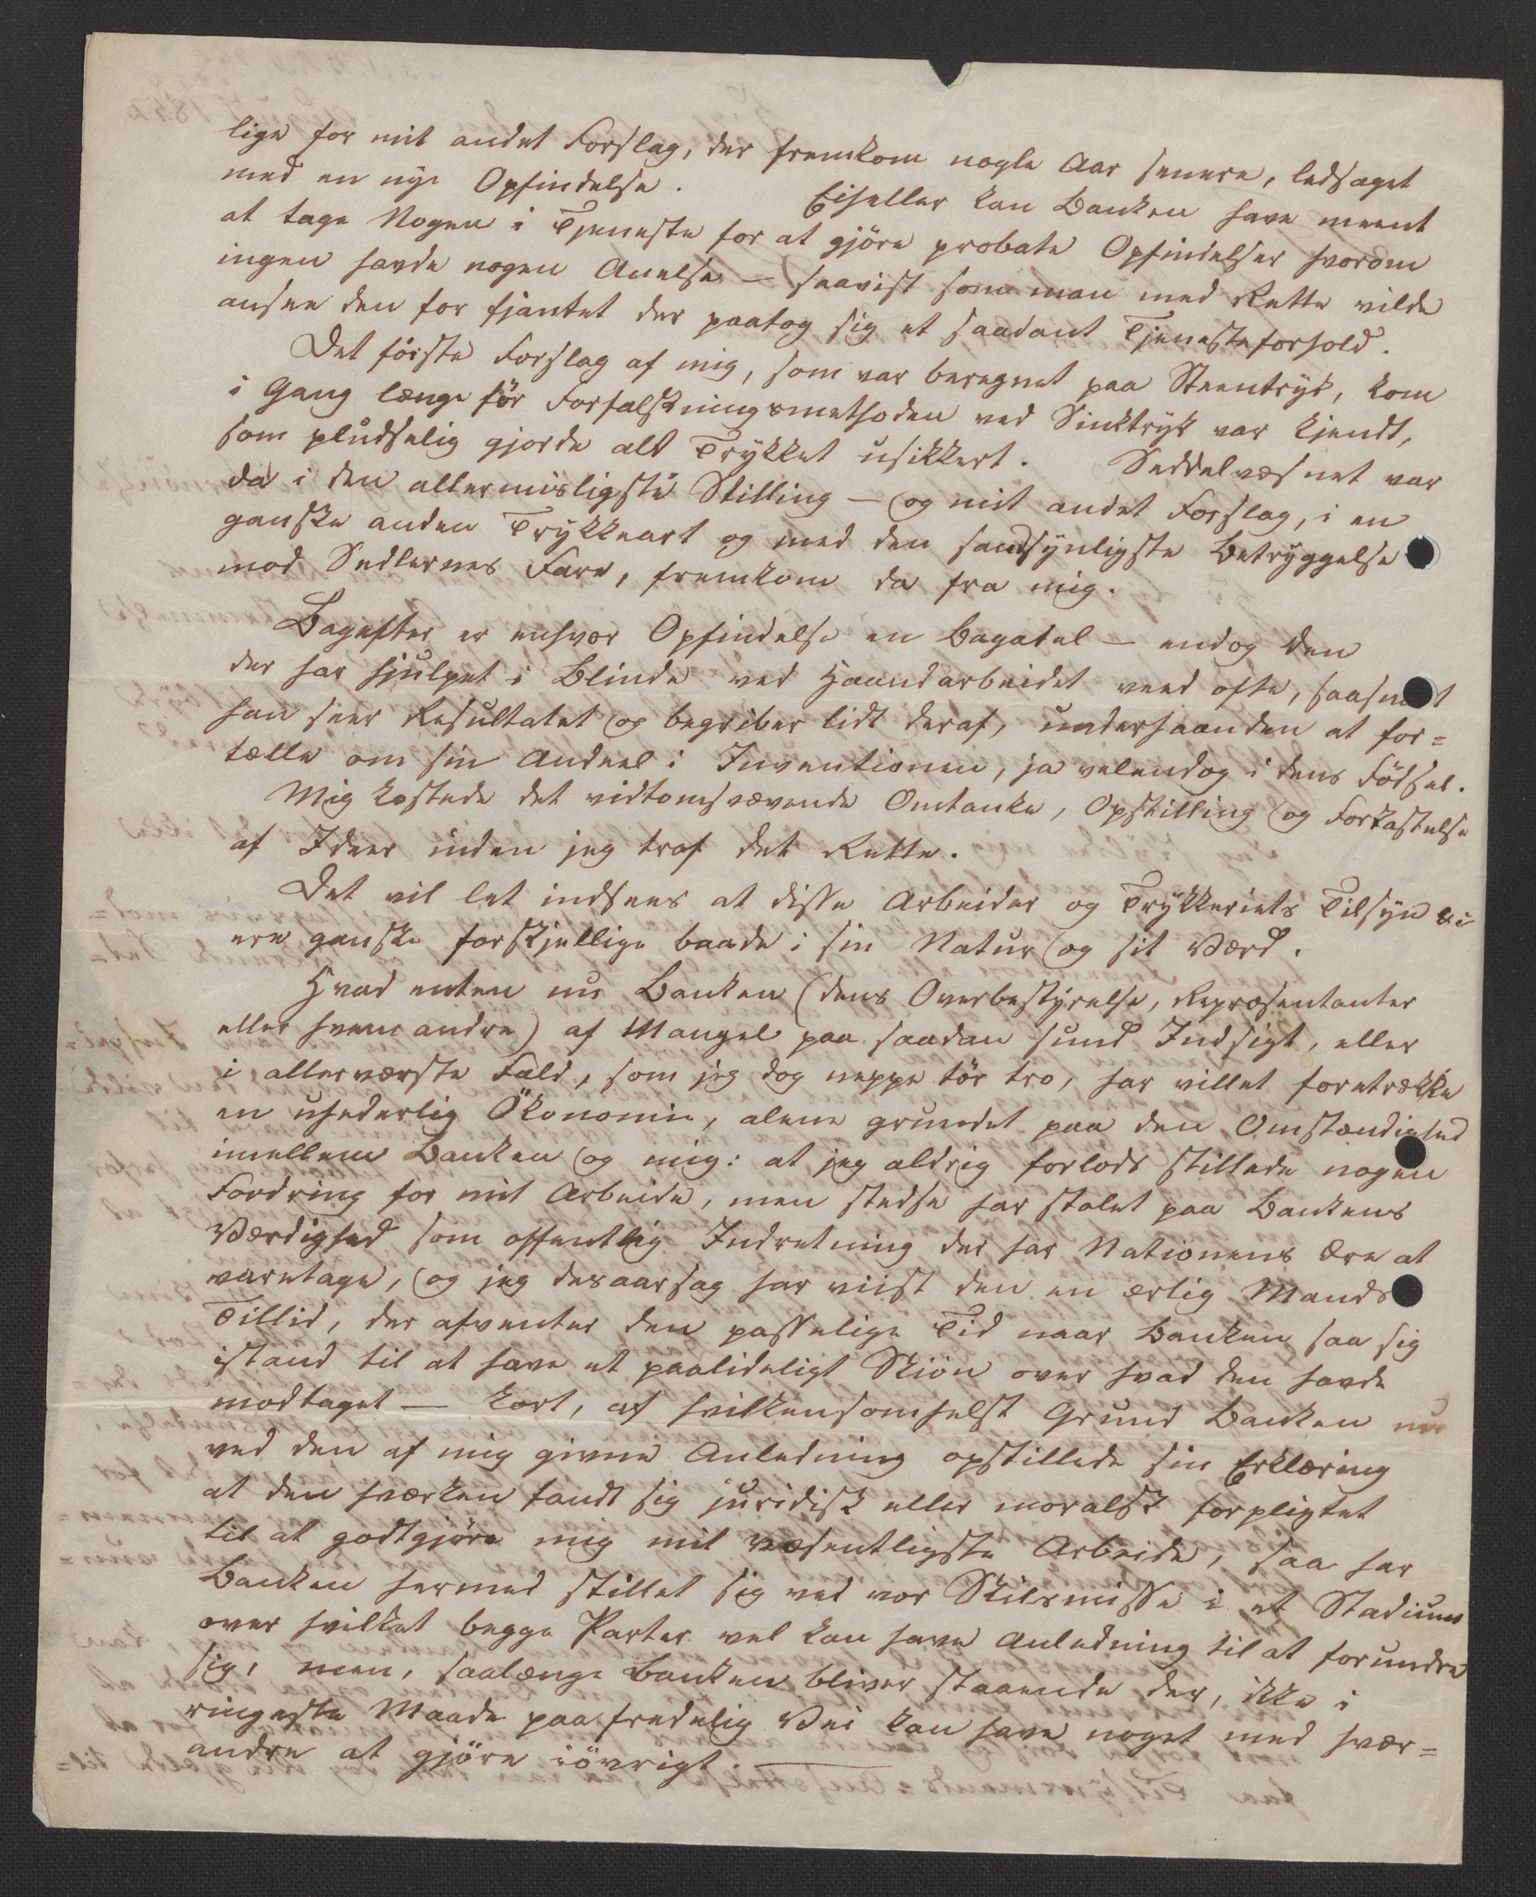 lige for mit andet Forslag, der fremkom nogle Aar senere, ledsaget
med en nye Opfindelse. Eiheller kan Banken have meent
at tage Nogen i Tjeneste for at gjöre probate Opfindelser hvorom
ingen havde nogen Anelse — saavist som man med Rette vilde
ansee den for fjantet der paatog sig et saadant Tjenesteforhold.
Det förste Forslag af mig, som var beregnet paa Steentryk, kom
i Gang længe för Forfalskningsmethoden ved Sinktryk var kjendt,
som pludselig gjorde alt Trykket usikkert. Seddelvæsnet var
da i den allermisligste Stilling — og mit andet Forslag, i en
ganske anden Trykkeart og med den sandsynligste Betryggelse
mod Sedlernes Fare, fremkom da fra mig.
Bagefter er enhver Opfindelse en Bagatel — endog den
der har hjulpet i Blinde ved Haandarbeidet veed ofte, saasnart
han seer Resultatet og begriber lidt deraf, underhaanden at for=
tælle om sin Andeel i Inventionen, ja velendog i dens Födsel.
Mig kostede det vidtomsvævende Omtanke, Opstilling og Forkastelse
af Ideer inden jeg traf det Rette.
Det vil let indsees at disse Arbeider og Trykkeriets Tilsyn &c
ere ganske forskjellige baade i sin Natur og sit Værd.
Hvad enten nu Banken (dens Overbestyrelse, Repræsentanter
eller hvem andre) af Mangel paa saadan sund Indsigt, eller
i allerværste Fald, som jeg dog neppe tör tro, har villet foretrække
en uhederlig Ökonomie, alene grundet paa den Omstændighed
imellem Banken og mig: at jeg aldrig forlods stillede nogen
Fordring for mit Arbeide, men stedse har stolet paa Bankens
Værdighed som offentlig Indretning der har Nationens Ære at
varetage, og jeg desaarsag har viist den en ærlig Mands
Tillid, der afventer den passelige Tid naar Banken saa sig
istand til at have et paalideligt Skiön over hvad den havde
modtaget — kort, af hvilkensomhelst Grund Banken nu
ved den af mig givne Anledning opstillede sin Erklæring
at den hværken fandt sig juridisk eller moralsk forpligtet
til at godtgjöre mig mit væsentligste Arbeide, saa har
Banken hermed stillet sig ved vor Skilsmisse i et Stadium
over hvilket begge Parter vel kan have Anledning til at forundre
sig, men, saalænge Banken bliver staaende der, ikke i
ringeste Maade paa fredelig Vei kan have noget med hver=
andre at gjöre iövrigt. —